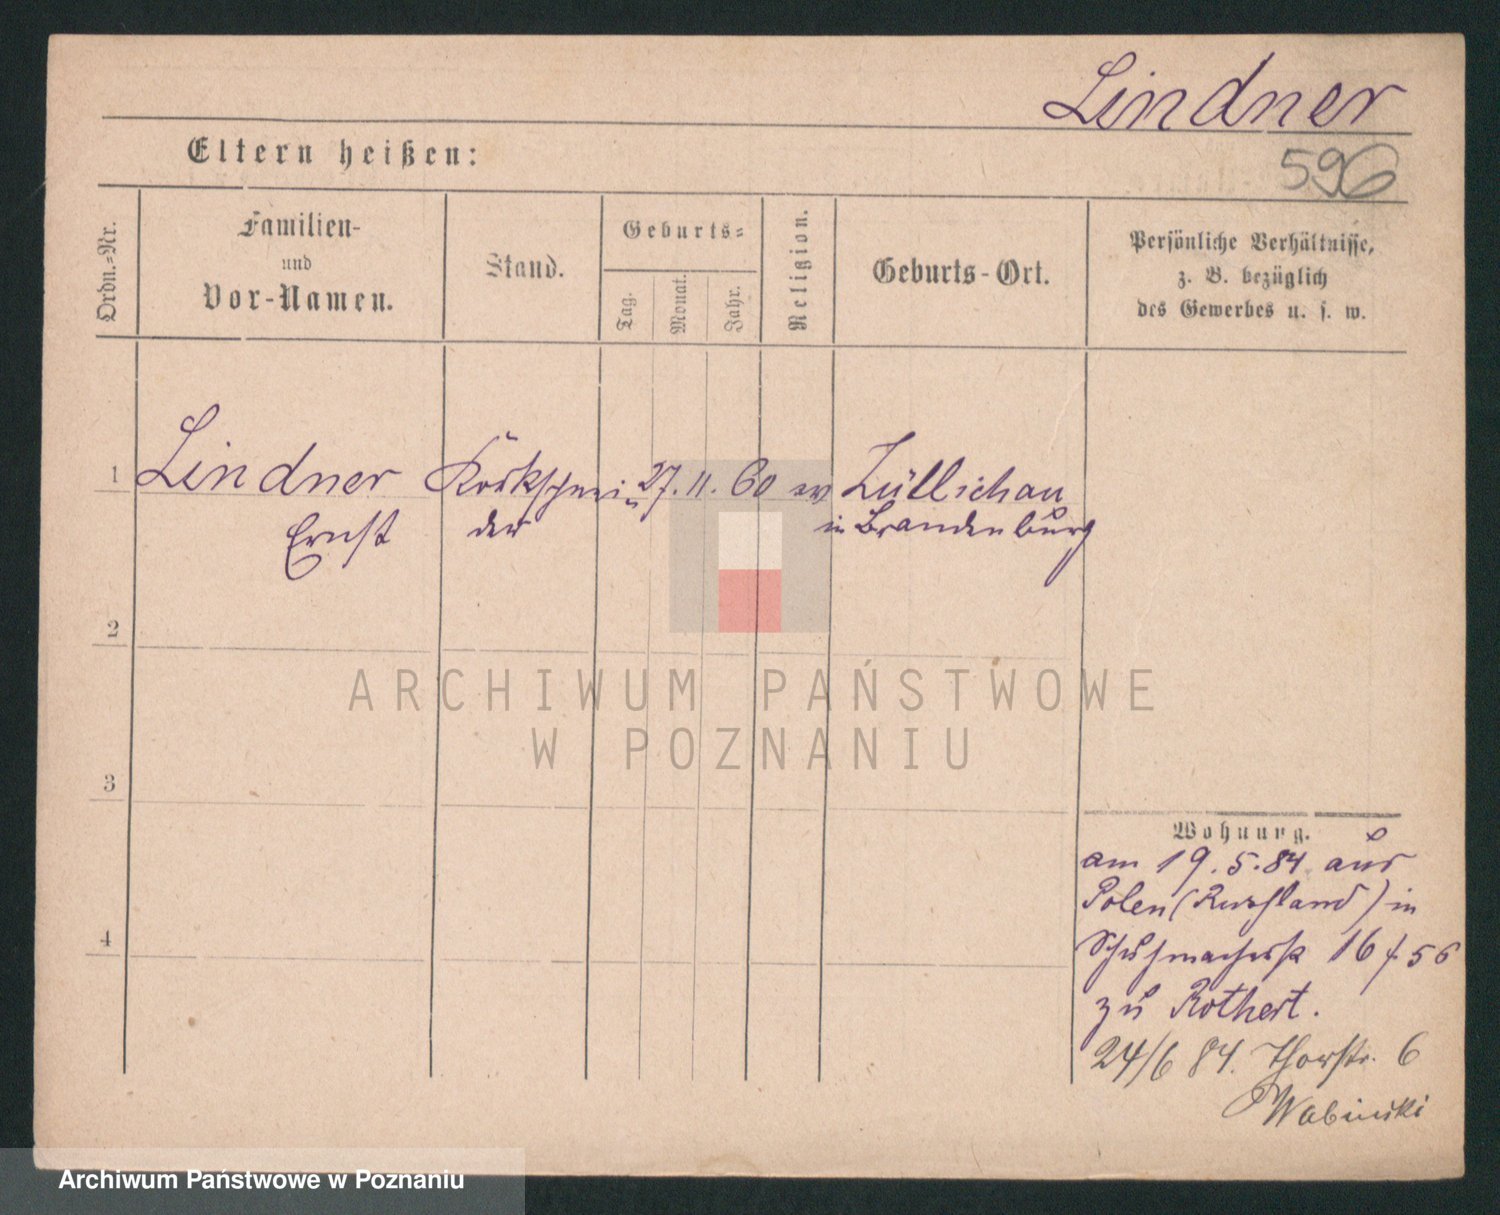 Lindner
Eltern heißen:
596
Ordn.-Nr.
Familien-
und
Vor-Namen.
Stand.
Geburts-
Tag.
Monat.
Jahr.
Religion.
Geburts-Ort.
Persönliche Verhältnisse,
z. B. bezüglich
des Gewerbes u. s. w.
1
Lindner Korkschnei- 27. 11. 60 ev Züllichau
Ernst der in Brandenburg
2
ARCHIWUM PAŃSTWOWE
W POZNANIU
3
Wohnung.
am 19.5.84 aus
Polen (Russland) in
4
Schuhmacherstr 16 / 56
zu Rothert.
24/6 84. Thorstr. 6
Wabinski
Archiwum Państwowe w Poznaniu